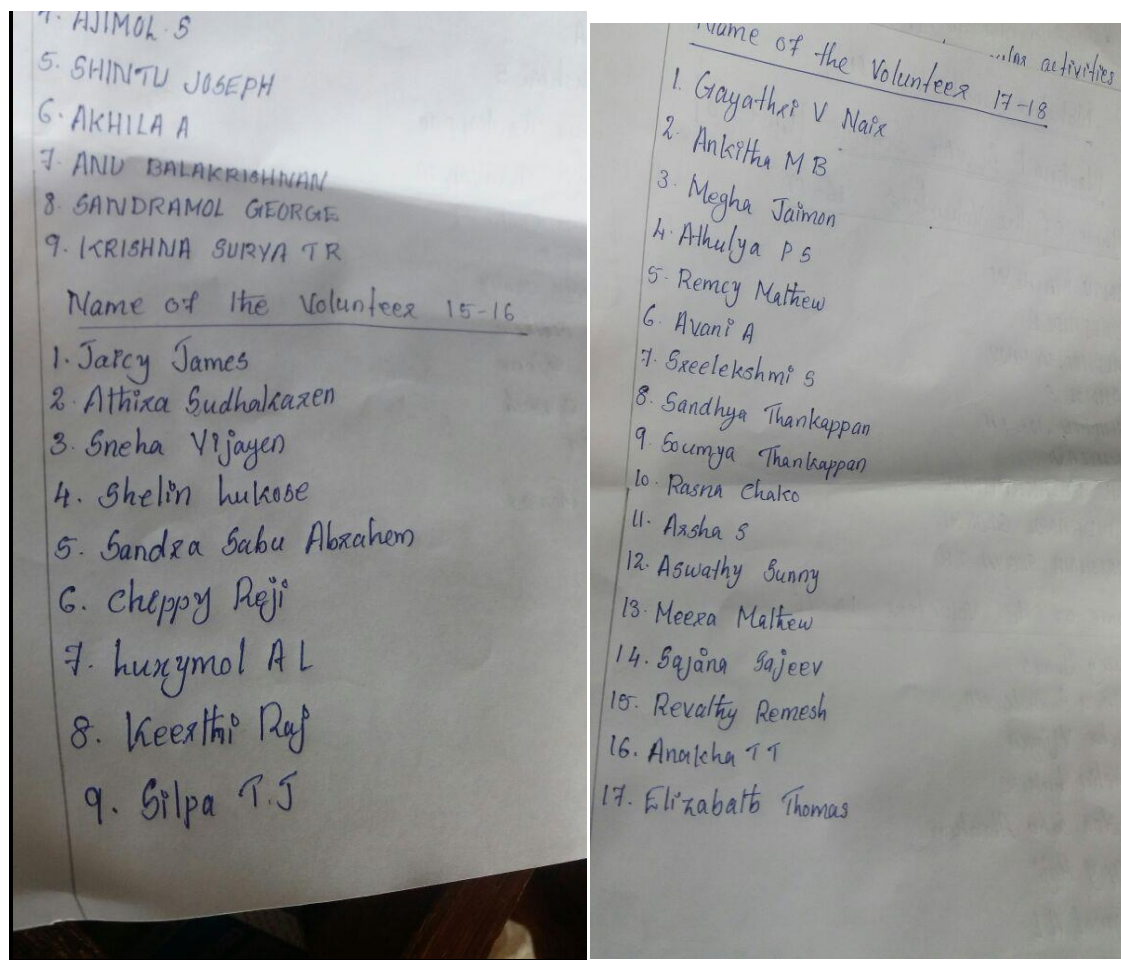 4. AJIMOL. S
5. SHINTU JOSEPH
6. AKHILA A
7. ANU BALAKRISHNAN
8. SANDRAMOL GEORGE
9. KRISHNA SURYA T R
Name of the Volunteer 15-16
1. Jaicy James
2. Athira Sudhakaren
3. Sneha Vijayen
4. Shelin Lukose
5. Sandra Sabu Abrahem
6. Cheppy Reji
7. Luxymol A L
8. Keerthi Raj
9. Silpa T.J
activities
Name of the Volunteer 17-18
1. Gayathri V Nair
2. Ankitha M B
3. Megha Jaimon
4. Athulya P S
5. Remcy Mathew
6. Avani A
7. Sreelekshmi S
8. Sandhya Thankappan
9. Soumya Thankappan
10. Rasna Chako
11. Arsha S
12. Aswathy Sunny
13. Meera Mathew
14. Sajana Sajeev
15. Revathy Remesh
16. Anakha T T
17. Elizabath Thomas